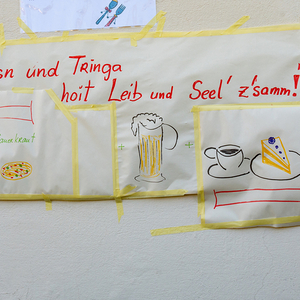 sn und Tringa
hoit Leib und Seel' z'samm!